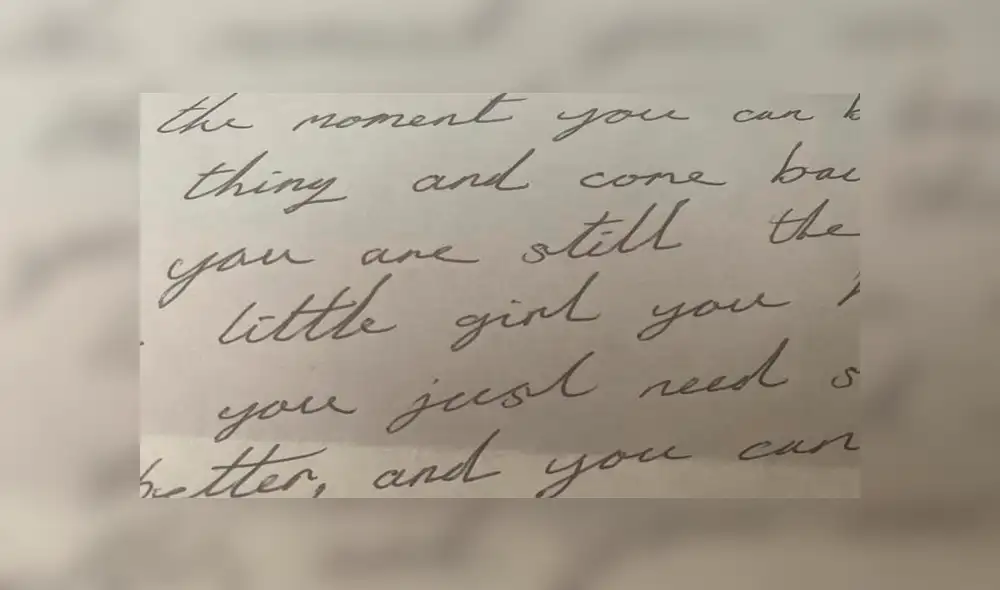 the moment you can
thing and come
you are still the
little girl you
you just need
better, and you can